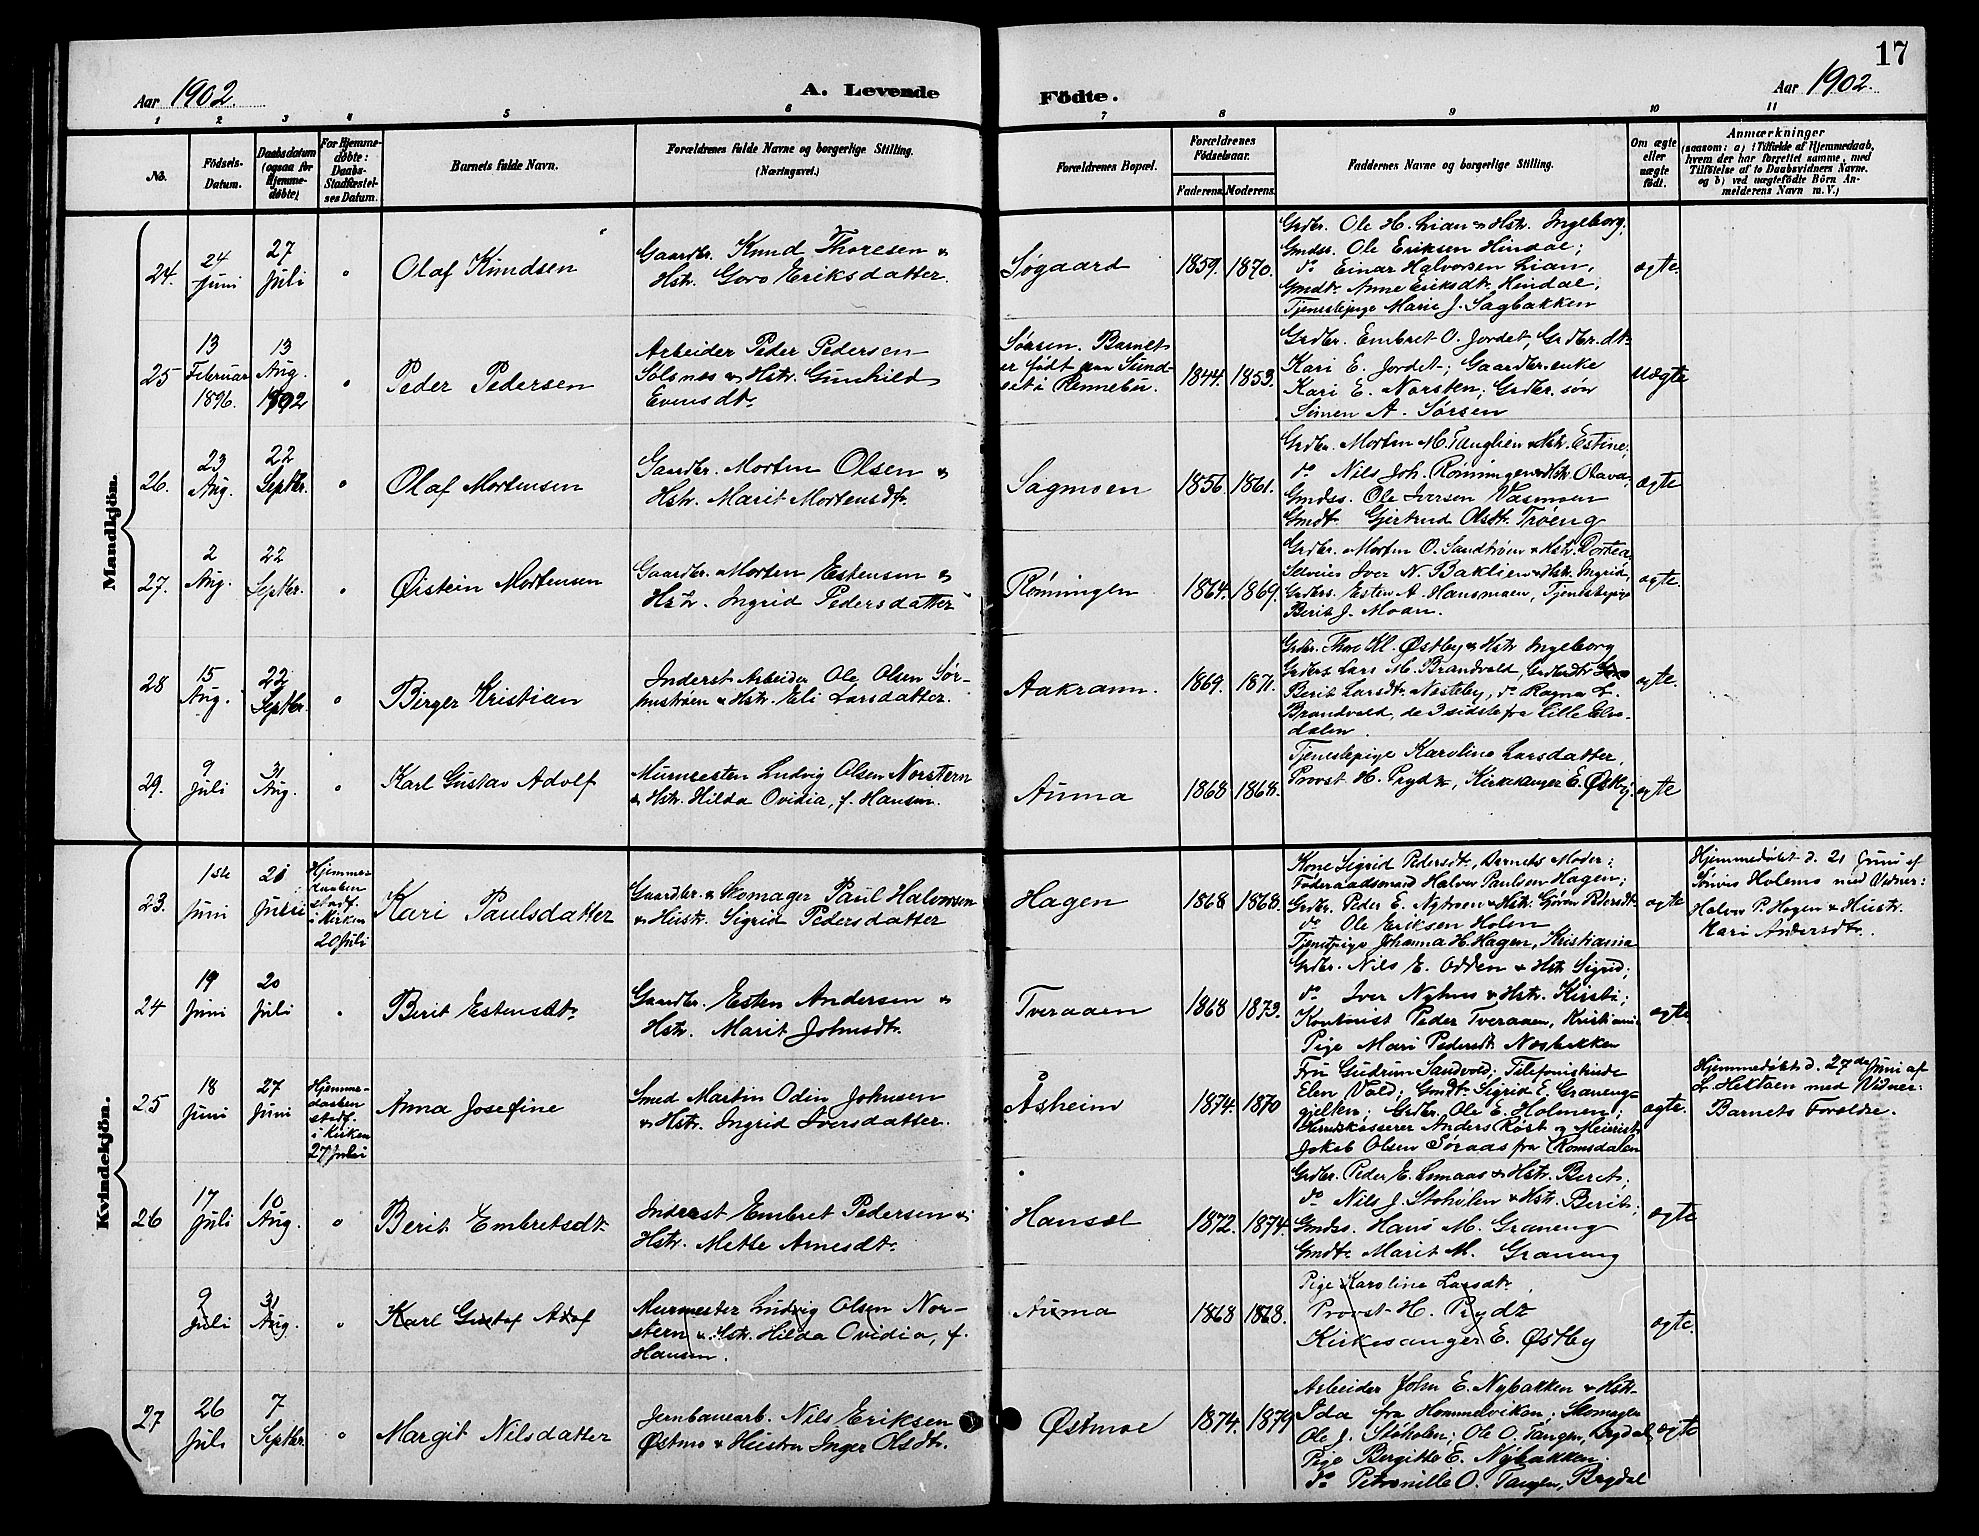 17
Aar 1902.
A. Levende
Födte.
Aar 1902.
1 2 3 4 5 6 7 8 9 10 11
No.
Födsels-
Datum.
Daabsdatum
(ogsaa for
Hjemme-
døbte)
For Hjemme-
døbte:
Daabs-
Stadfæstel-
ses Datum.
Barnets fulde Navn.
Forældrenes fulde Navne og borgerlige Stilling.
(Næringsvei.)
Forældrenes Bopæl.
Forældrenes
Födselsaar.
Faderens. Moderens.
Faddernes Navne og borgerlige Stilling.
Om ægte
eller
uægte
født.
Anmærkninger
(saasom: a) i Tilfælde af Hjemmedaab,
hvem der har forrettet samme, med
Tilföielse af to Daabsvidners Navne.
og b) ved uægtefödte Börn An-
melderens Navn m. V.)
Mandkjön.
24.
24
Juni
27
Juli
"
Olaf Knudsen
Gaardbr. Knud Thoresen &
Hstr. Goro Eriksdatter.
Søgaard
1859. 1870.
Grdbr. Ole H. Lian & Hstr. Ingeborg,
Gmdss. Ole Eriksen Hindal;
do Einar Halvorsen Lian,
Gmdt. Anne Eriksdt. Hindal,
Tjenestepige Marie J. Sagbakken
ægte.
25
13
Februar
1896.
13
Aug.
1902
"
Peder Pedersen
Arbeider Peder Pedersen
Solsnes & Hstr. Gunhild
Evensdt.
Sørsen. Barnet
er født paa Sund-
set i Rennebu.
1844. 1853.
Grdbr. Embret O. Jordet, Grdbr. dt.
Kari E. Jordet; Gaardbr. enke
Kari E. Norsten; Grdbr. søn
Simen A. Sørsen
Uægte
26.
23
Aug.
22
Septbr.
"
Olaf Mortensen
Gaardbr. Morten Olsen &
Hstr. Marit Mortensdt.
Sagmoen
1856. 1861.
Grdbr. Morten M. Fauglien & Hstr. Estine.
do Nils Joh. Rønningen & Hstr. Olava,
Gmdss. Ole Iversen Vasmoen
Gmdt. Gjertrud Olsdt. Trøeng
ægte
27.
2
Aug.
22
Septbr.
"
Øistein Mortensen
Gaardbr. Morten Estensen &
Hstr. Ingrid Pedersdatter
Rønningen
1864. 1869.
Grdbr. Morten O. Sandtrøen & Hstr. Dortea,
Selveier Iver N. Baklien & Hstr. Ingrid,
Grdbrs. Esten A. Hansmoen, Tjenestepige
Berit J. Moan.
ægte.
28
15
Aug.
22
Septbr.
"
Birger Kristian
Inderst Arbeider Ole Olsen Sør-
hustrøen & Hstr. Eli Larsdatter.
Aakrann.
1869. 1871.
Grdbr. Thor Kl. Østby & Hstr Ingeborg
Grdbrs. Lars M. Brandvold,
Berit Larsdt. Nesteby, do Ragna L.
Brandvold, de 3 sidste fra Lille Elve-
dalen
ægte.
29.
9
Juli
31
Aug.
"
Karl Gustav Adolf
Murmesten Ludvig Olsen Norstern
& Hstr. Hilda Ovidia, f. Hansen.
Auma
1868 1868.
Tjenestepige Karoline Larsdatter,
Provst H. Prydz, Kirkesanger E. Østby.
ægte
Kvindekjön.
23.
1ste
Juni
21
Juni
Hjemme-
daaben
stadf.
i Kirken
20 Juli
Kari Paulsdatter
Gaardbr. & Skomager Paul Halvorsen
& Hustr. Sigrid Pedersdatter
Hagen
1868 1868.
Kone Sigrid Pedersdt. Barnets Moder;
Føderaadsmand Halvor Paulsen Hagen;
Grdbr. Peder E. Nytrøen & Hstr. Gjøran Pedersdt.
do Ole Eriksen Holen
Tjenestpige Johanna H. Hagen, Kristiania
ægte
Hjemmedøbt d. 21 Juni af
Holemo med Vidner:
Halvor P. Hagen & Hustr.
Kari Andersdt.
24
19
Juni
20
Juli
"
Berit Estensdt.
Gaardbr. Esten Andersen &
Hstr. Marit Johnsdt.
Tveraaen
1868 1873.
Grdbr. Nils E. Odden & Hstr Sigrid;
do Iver Nyhus & Hstr. Kirsti;
Kontorist Peder Tveraaen, Kristiania
Pige Mari Pedersdt. Næsbakken
ægte.
25
18
Juni
27
Juni
Hjemme-
daaben
stadf.
i Kirken
27 Juli
Anna Josefine
Smed Martin Odin Johnsen
& Hstr. Ingrid Iversdatter.
Åsheim
1874. 1870
Fru Gudrun Sandvold; Telefonistinde
Elen Vold; Gmdt. Sigrid E. Graneng-
gjelten; Grdbr. Ole E. Holmen;
Anders Røst & Meierist
Jakob Olsen Søraas fra Romsdalen
ægte.
Hjemmedøbt d. 27de Juni af
L. Hektoen med Vidner:
Barnets Forældre.
26
17
Juli
10
Aug.
"
Berit Embretsdt.
Inderst Embret Pedersen &
Hstr. Mette Arnesdt.
Hansel
1872. 1874.
Grdbr. Peder E. Lonaas & Hstr. Berit;
do Nils J. Stohølen & Hstr. Berit;
Gmdss. Hans M. Graneng
Gmdt. Marit M. Graneng
ægte
9
Juli
31
Aug.
"
Karl Gustaf Adolf
Murmester Ludvig Olsen Nor-
stern & Hstr. Hilda Ovidia, f.
Hansen.
Auma
1868 1868.
Pige Karoline Larsdt.
Provst H. Prydz
Kirkesanger E. Østby
ægte.
27
26
Juli
7
Septbr.
"
Margit Nilsdatter
Jernbanearb. Nils Eriksen
Østmo & Hustru Inger Olsdt.
Østmoe
1874. 1879
Arbeider John E. Nybakken & Hstr.
Ida fra Hommelviken; Skomager
Ole J. Støholen; Ole O. Tangen, Brydal,
Pige Bergitte E. Nybakken.
do Petronille O. Tangen, Brydal
ægte